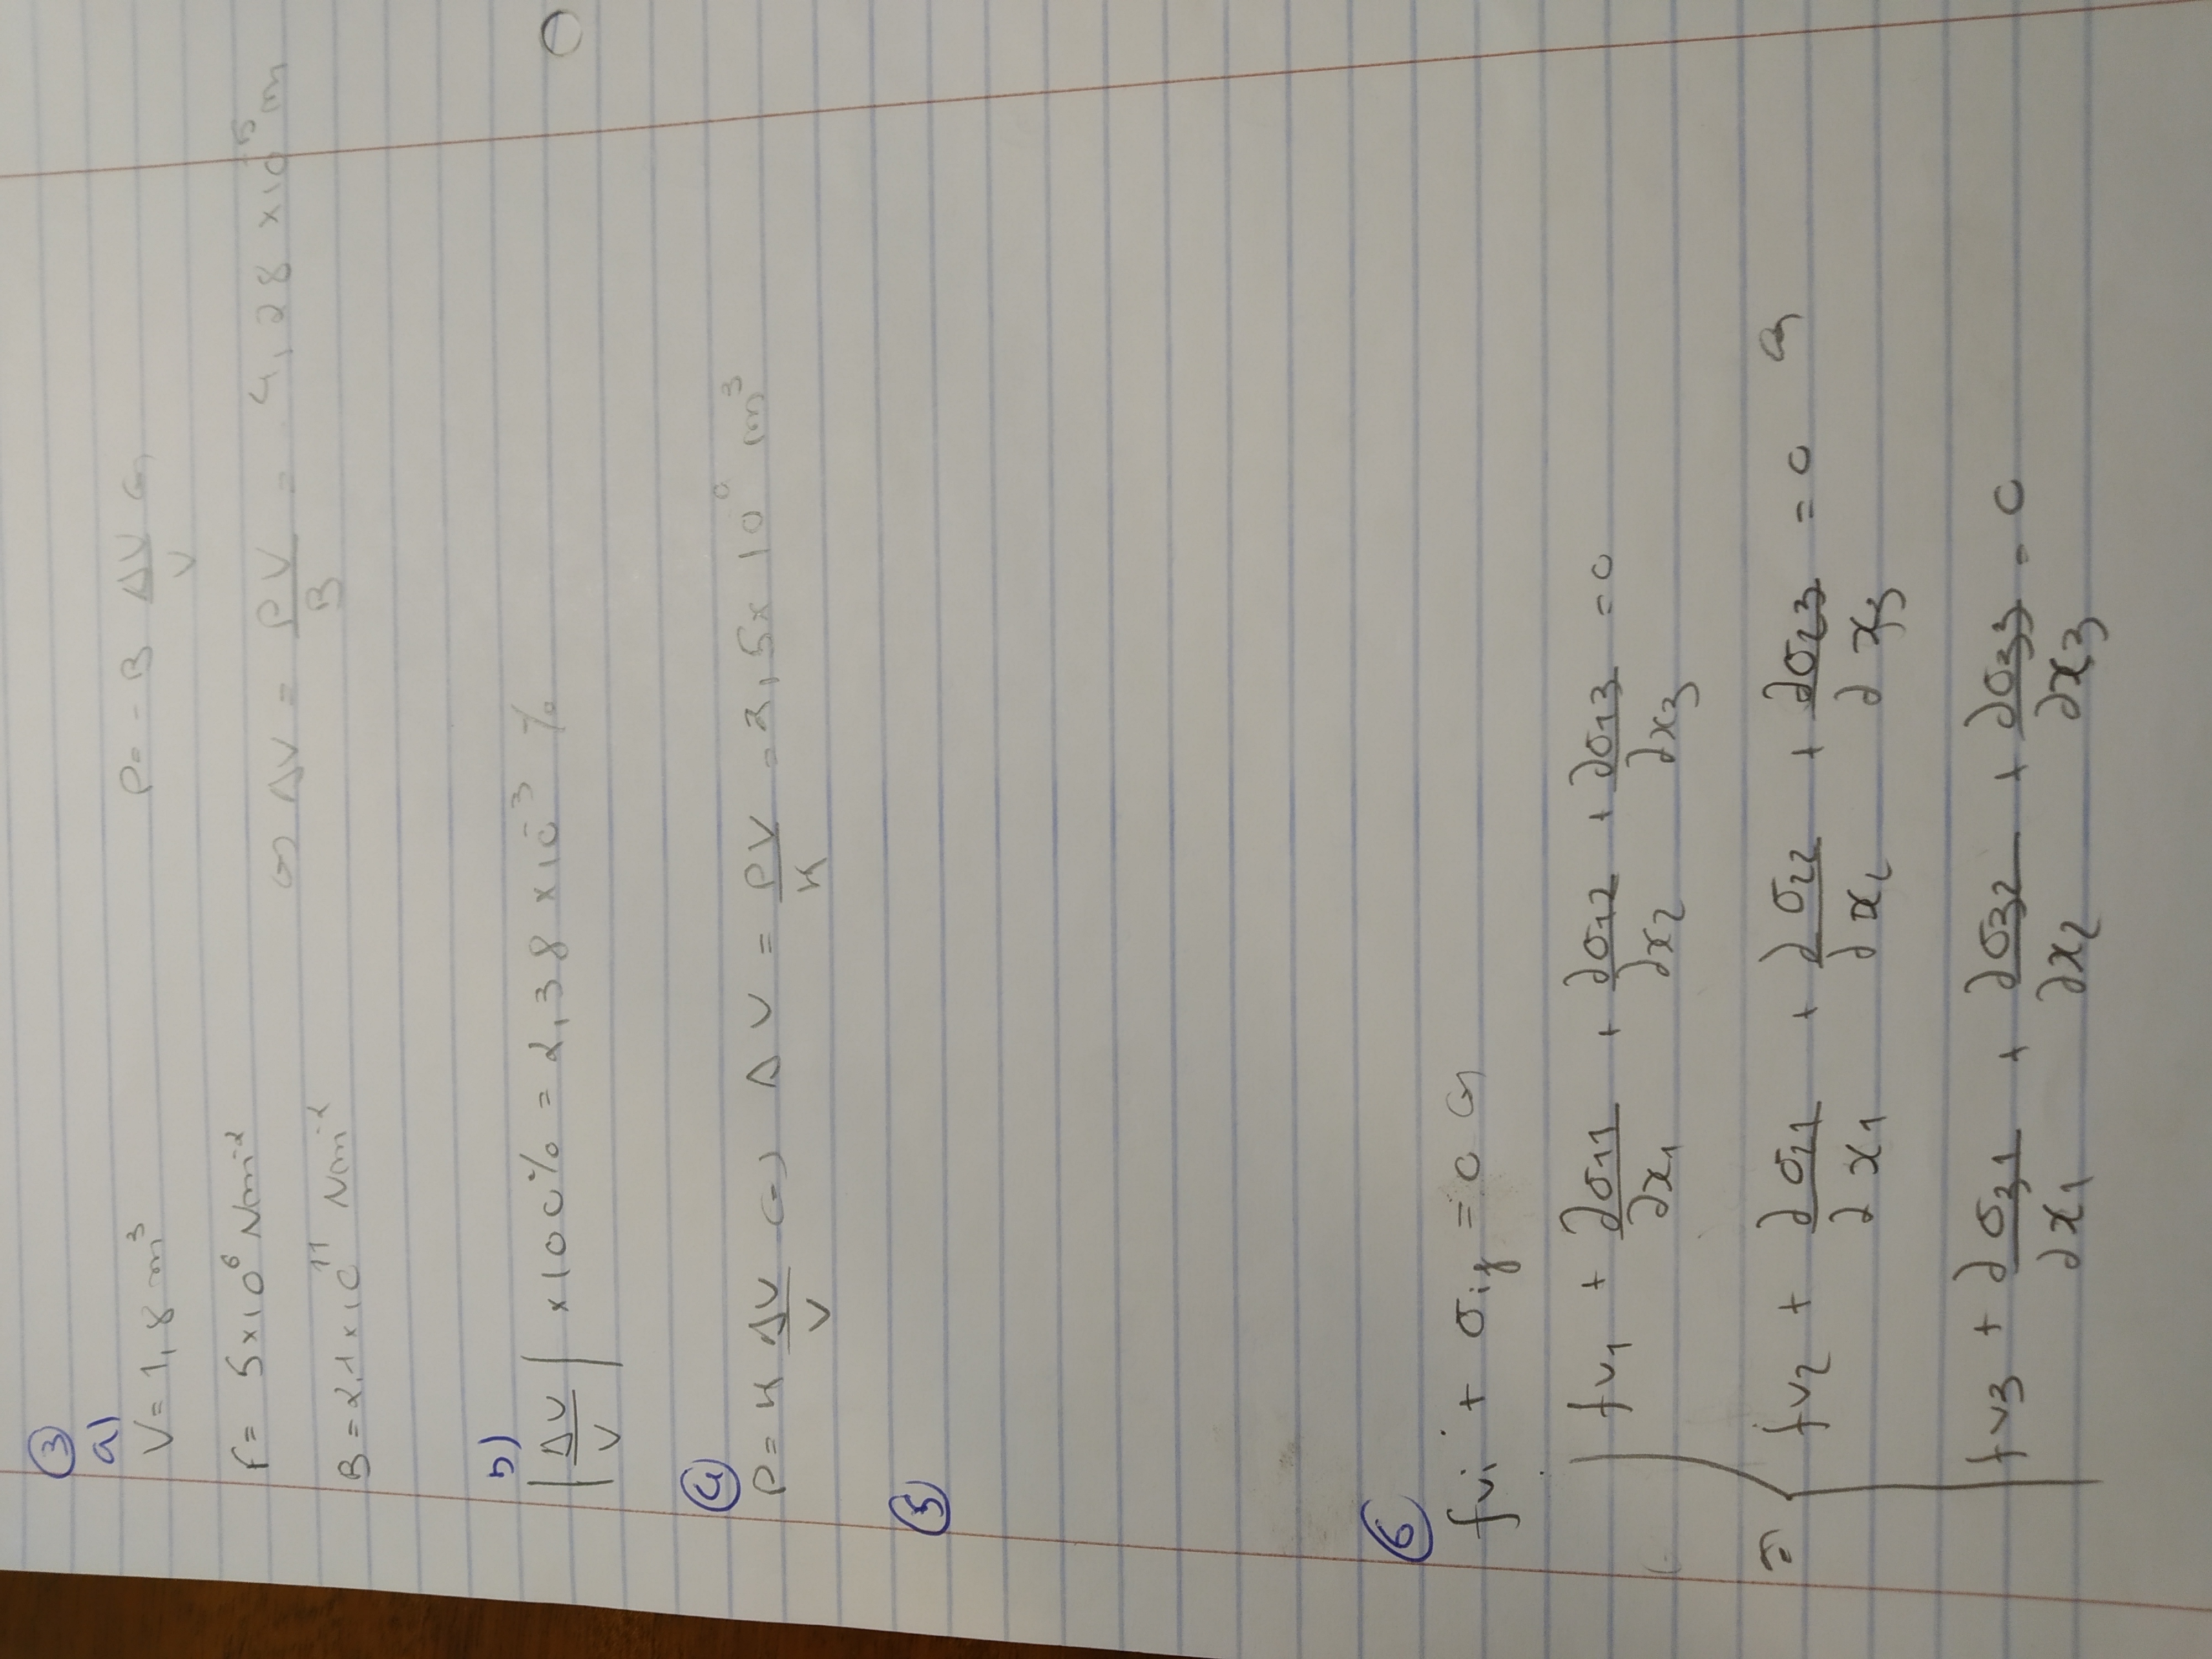 ③
a)
V = 1,8 m³ P = - B ΔV/V ⇔
f = 5x10⁶ Nm⁻² ⇔ ΔV = PV/B = 4,28 x10⁻⁵ m
B = 2,1 x 10¹¹ Nm⁻²
b)
|ΔV/V| x100% = 2,38 x10⁻³ %
④
P = K ΔV/V ⇔ ΔV = PV/K = 2,5x 10⁰ m³
⑤
⑥
fvi + σij = 0 ⇔
fv1 + ∂σ11/∂x1 + ∂σ12/∂x2 + ∂σ13/∂x3 = 0
⇔ { fv2 + ∂σ21/∂x1 + ∂σ22/∂x2 + ∂σ23/∂x3 = 0 ⇔
fv3 + ∂σ31/∂x1 + ∂σ32/∂x2 + ∂σ33/∂x3 = 0